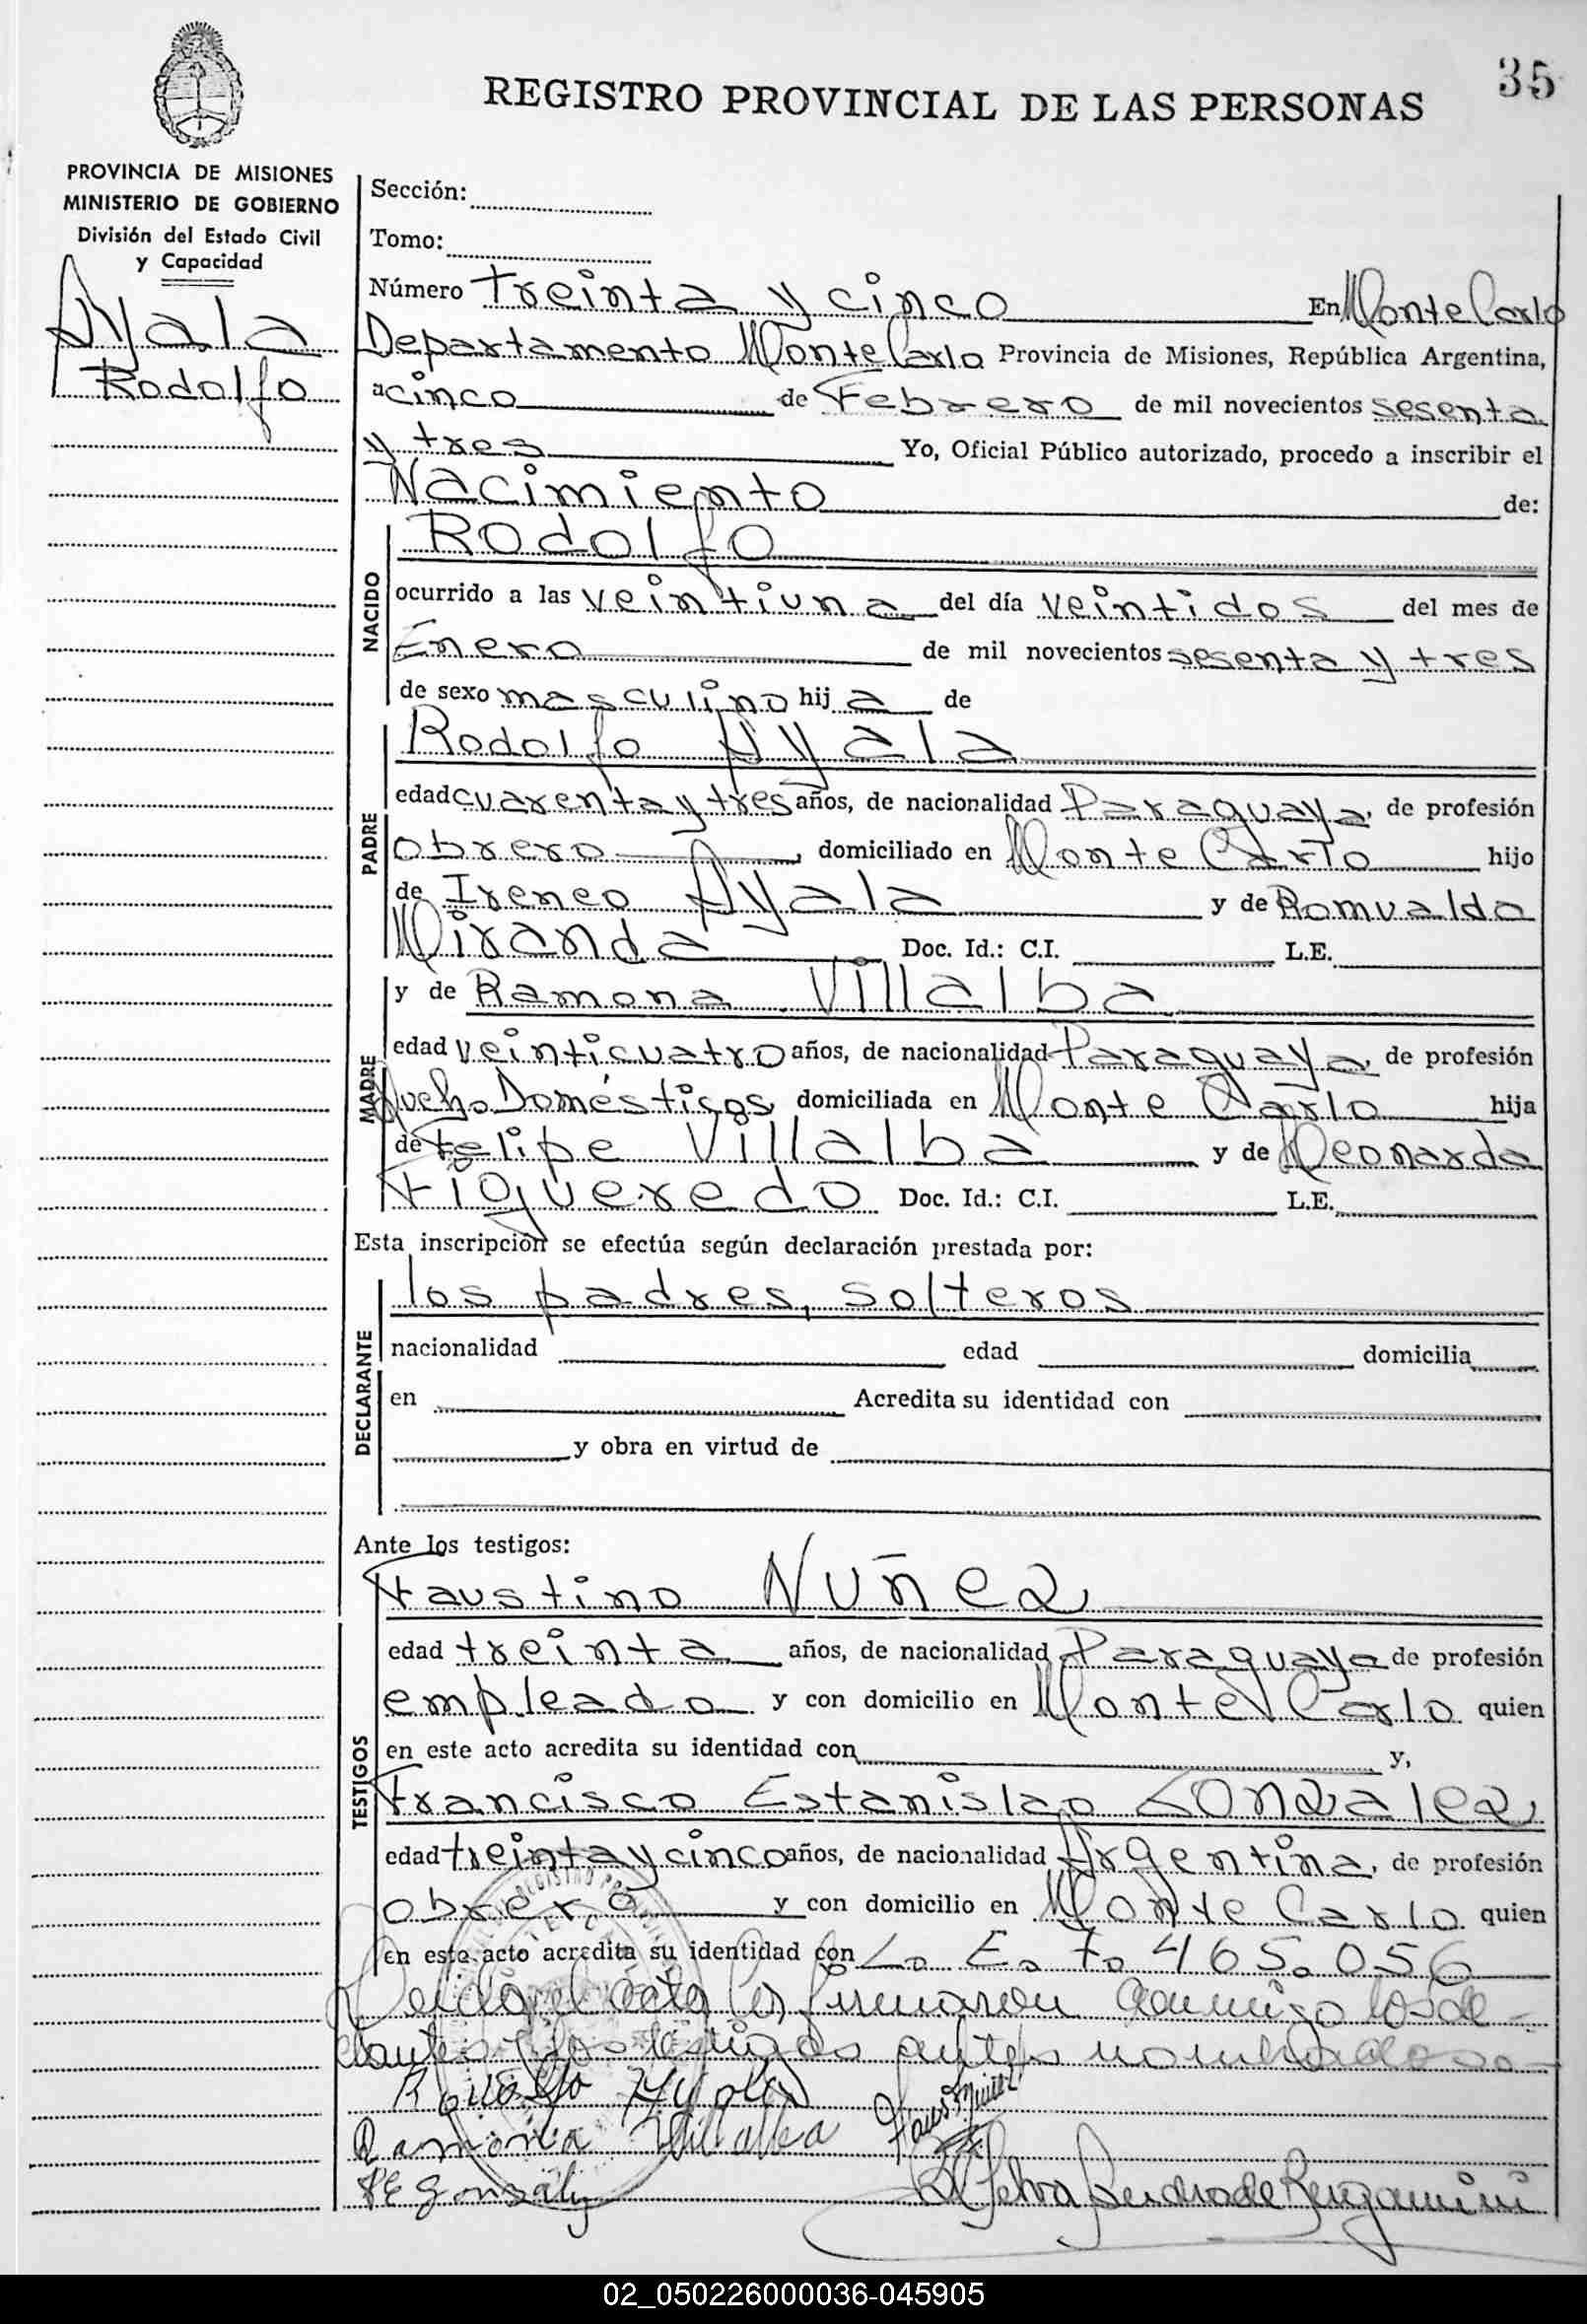 35
REGISTRO PROVINCIAL DE LAS PERSONAS
PROVINCIA DE MISIONES
MINISTERIO DE GOBIERNO
División del Estado Civil
y Capacidad
Ayala
Rodolfo
Sección:
Tomo:
Número treinta y cinco En Monte Carlo
Departamento Monte Carlo Provincia de Misiones, República Argentina,
a cinco de Febrero de mil novecientos sesenta
y tres Yo, Oficial Público autorizado, procedo a inscribir el
Nacimiento de:
NACIDO
Rodolfo
ocurrido a las veintiuna del día veintidos del mes de
Enero de mil novecientos sesenta y tres
de sexo masculino hij a de
PADRE
Rodolfo Ayala
edad cuarenta y tres años, de nacionalidad Paraguaya, de profesión
obrero, domiciliado en Monte Carlo hijo
de Ireneo Ayala y de Romualda
Miranda Doc. Id.: C.I. L.E.
MADRE
y de Ramona Villalba
edad veinticuatro años, de nacionalidad Paraguaya, de profesión
Domésticos domiciliada en Monte Carlo hija
de Felipe Villalba y de
Figueredo Doc. Id.: C.I. L.E.
Esta inscripción se efectúa según declaración prestada por:
DECLARANTE
los padres, solteros
nacionalidad edad domicilia
en Acredita su identidad con
y obra en virtud de
Ante los testigos:
TESTIGOS
Faustino Nuñez
edad treinta años, de nacionalidad Paraguaya de profesión
empleado y con domicilio en Monte Carlo quien
en este acto acredita su identidad con y,
Francisco Estanislao Gonzalez
edad treinta y cinco años, de nacionalidad Argentina, de profesión
obrero y con domicilio en Monte Carlo quien
en este acto acredita su identidad con L. E. 7. 465.056
Leida el acta la firmaron conmigo los de-
clantes y los testigos antes nombrados.-
Rodolfo Ayala
Ramona Villalba
F E Gonzalez
02_050226000036-045905